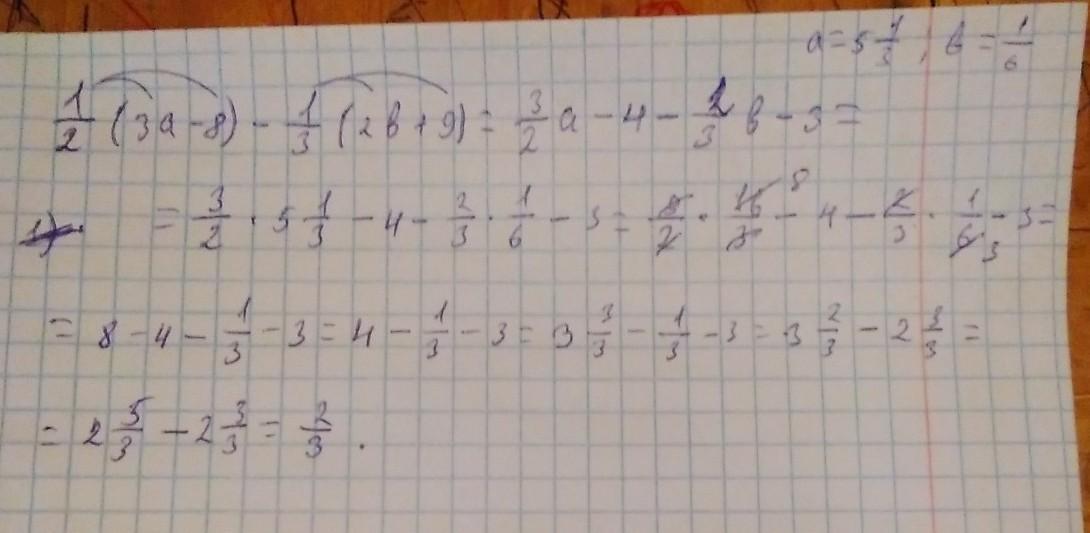 a = 5 1/3, b = 1/6
1/2 (3a - 8) - 1/3 (2b + 9) = 3/2 a - 4 - 2/3 b - 3 =
= 3/2 · 5 1/3 - 4 - 2/3 · 1/6 - 3 = 3/2 · 16/3 8 - 4 - 2/3 · 1/6 3 - 3 =
= 8 - 4 - 1/3 - 3 = 4 - 1/3 - 3 = 3 3/3 - 1/3 - 3 = 3 2/3 - 2 3/3 =
= 2 5/3 - 2 3/3 = 2/3.